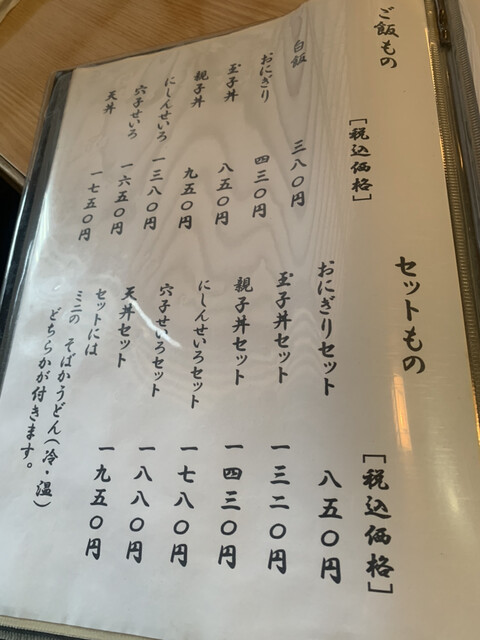 ご飯もの
［税込価格］
白飯 三八〇円
おにぎり 四三〇円
玉子丼 八五〇円
親子丼 九五〇円
にしんせいろ 一三八〇円
穴子せいろ 一六五〇円
天丼 一七五〇円
セットもの
［税込価格］
おにぎりセット 八五〇円
玉子丼セット 一三二〇円
親子丼セット 一四三〇円
にしんせいろセット 一七八〇円
穴子せいろセット 一八八〇円
天丼セット 一九五〇円
セットには
ミニの そばかうどん（冷・温）
どちらかが付きます。